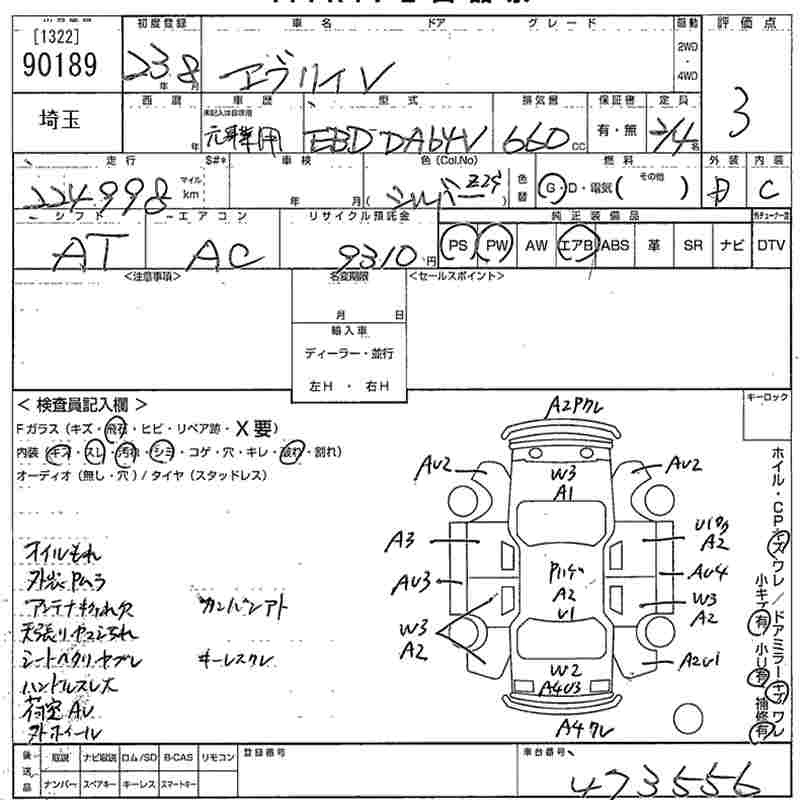 [1322]
90189
埼玉
初度登録 車名 ドア グレード 駆動 評価点
23年8月 エブリイV 2WD・4WD 3
西暦 車歴 型式 排気量 保証書 定員
年 元事業用 EBD DA64V 660cc 有・無 2/4名
走行 S#* 車検 色(Col.No) 色替 燃料 その他 外装 内装
224998 マイル km 年 月 ( シルバー Z2S ) G・D・電気( ) D C
シフト エアコン リサイクル預託金 純正装備品
AT AC 9310円 PS PW AW エアB ABS 革 SR ナビ DTV
<注意事項> 名変期限 <セールスポイント>
月 日
輸入車
ディーラー・並行
左H ・ 右H
<検査員記入欄> キーロック
Fガラス (キズ・飛石・ヒビ・リペア跡・X要)
内装 (キズ・スレ・汚れ・シミ・コゲ・穴・キレ・破れ・割れ)
オーディオ (無し・穴) / タイヤ (スタッドレス)
オイルもれ
外装Pムラ
アンテナ折れ欠 カンバンアト
シートヘタリヤブレ キーレスクレ
ハンドルスレ大
荷室AU
外ホイール
A2Pクレ
AU2 W3 A1 AU2
A3 A2
AU3 A2 U1 AU4
W3 A2 W3 A2
W2 A4U3 A2U1
A4クレ
ホイル・CP キズ ワレ / ドアミラー キズ ワレ
小キズ 有 小U 有 補修 有
後送品 取説 ナビ取説 ロム/SD B-CAS リモコン 登録番号 車台番号
ナンバー スペアキー キーレス スマートキー 473556